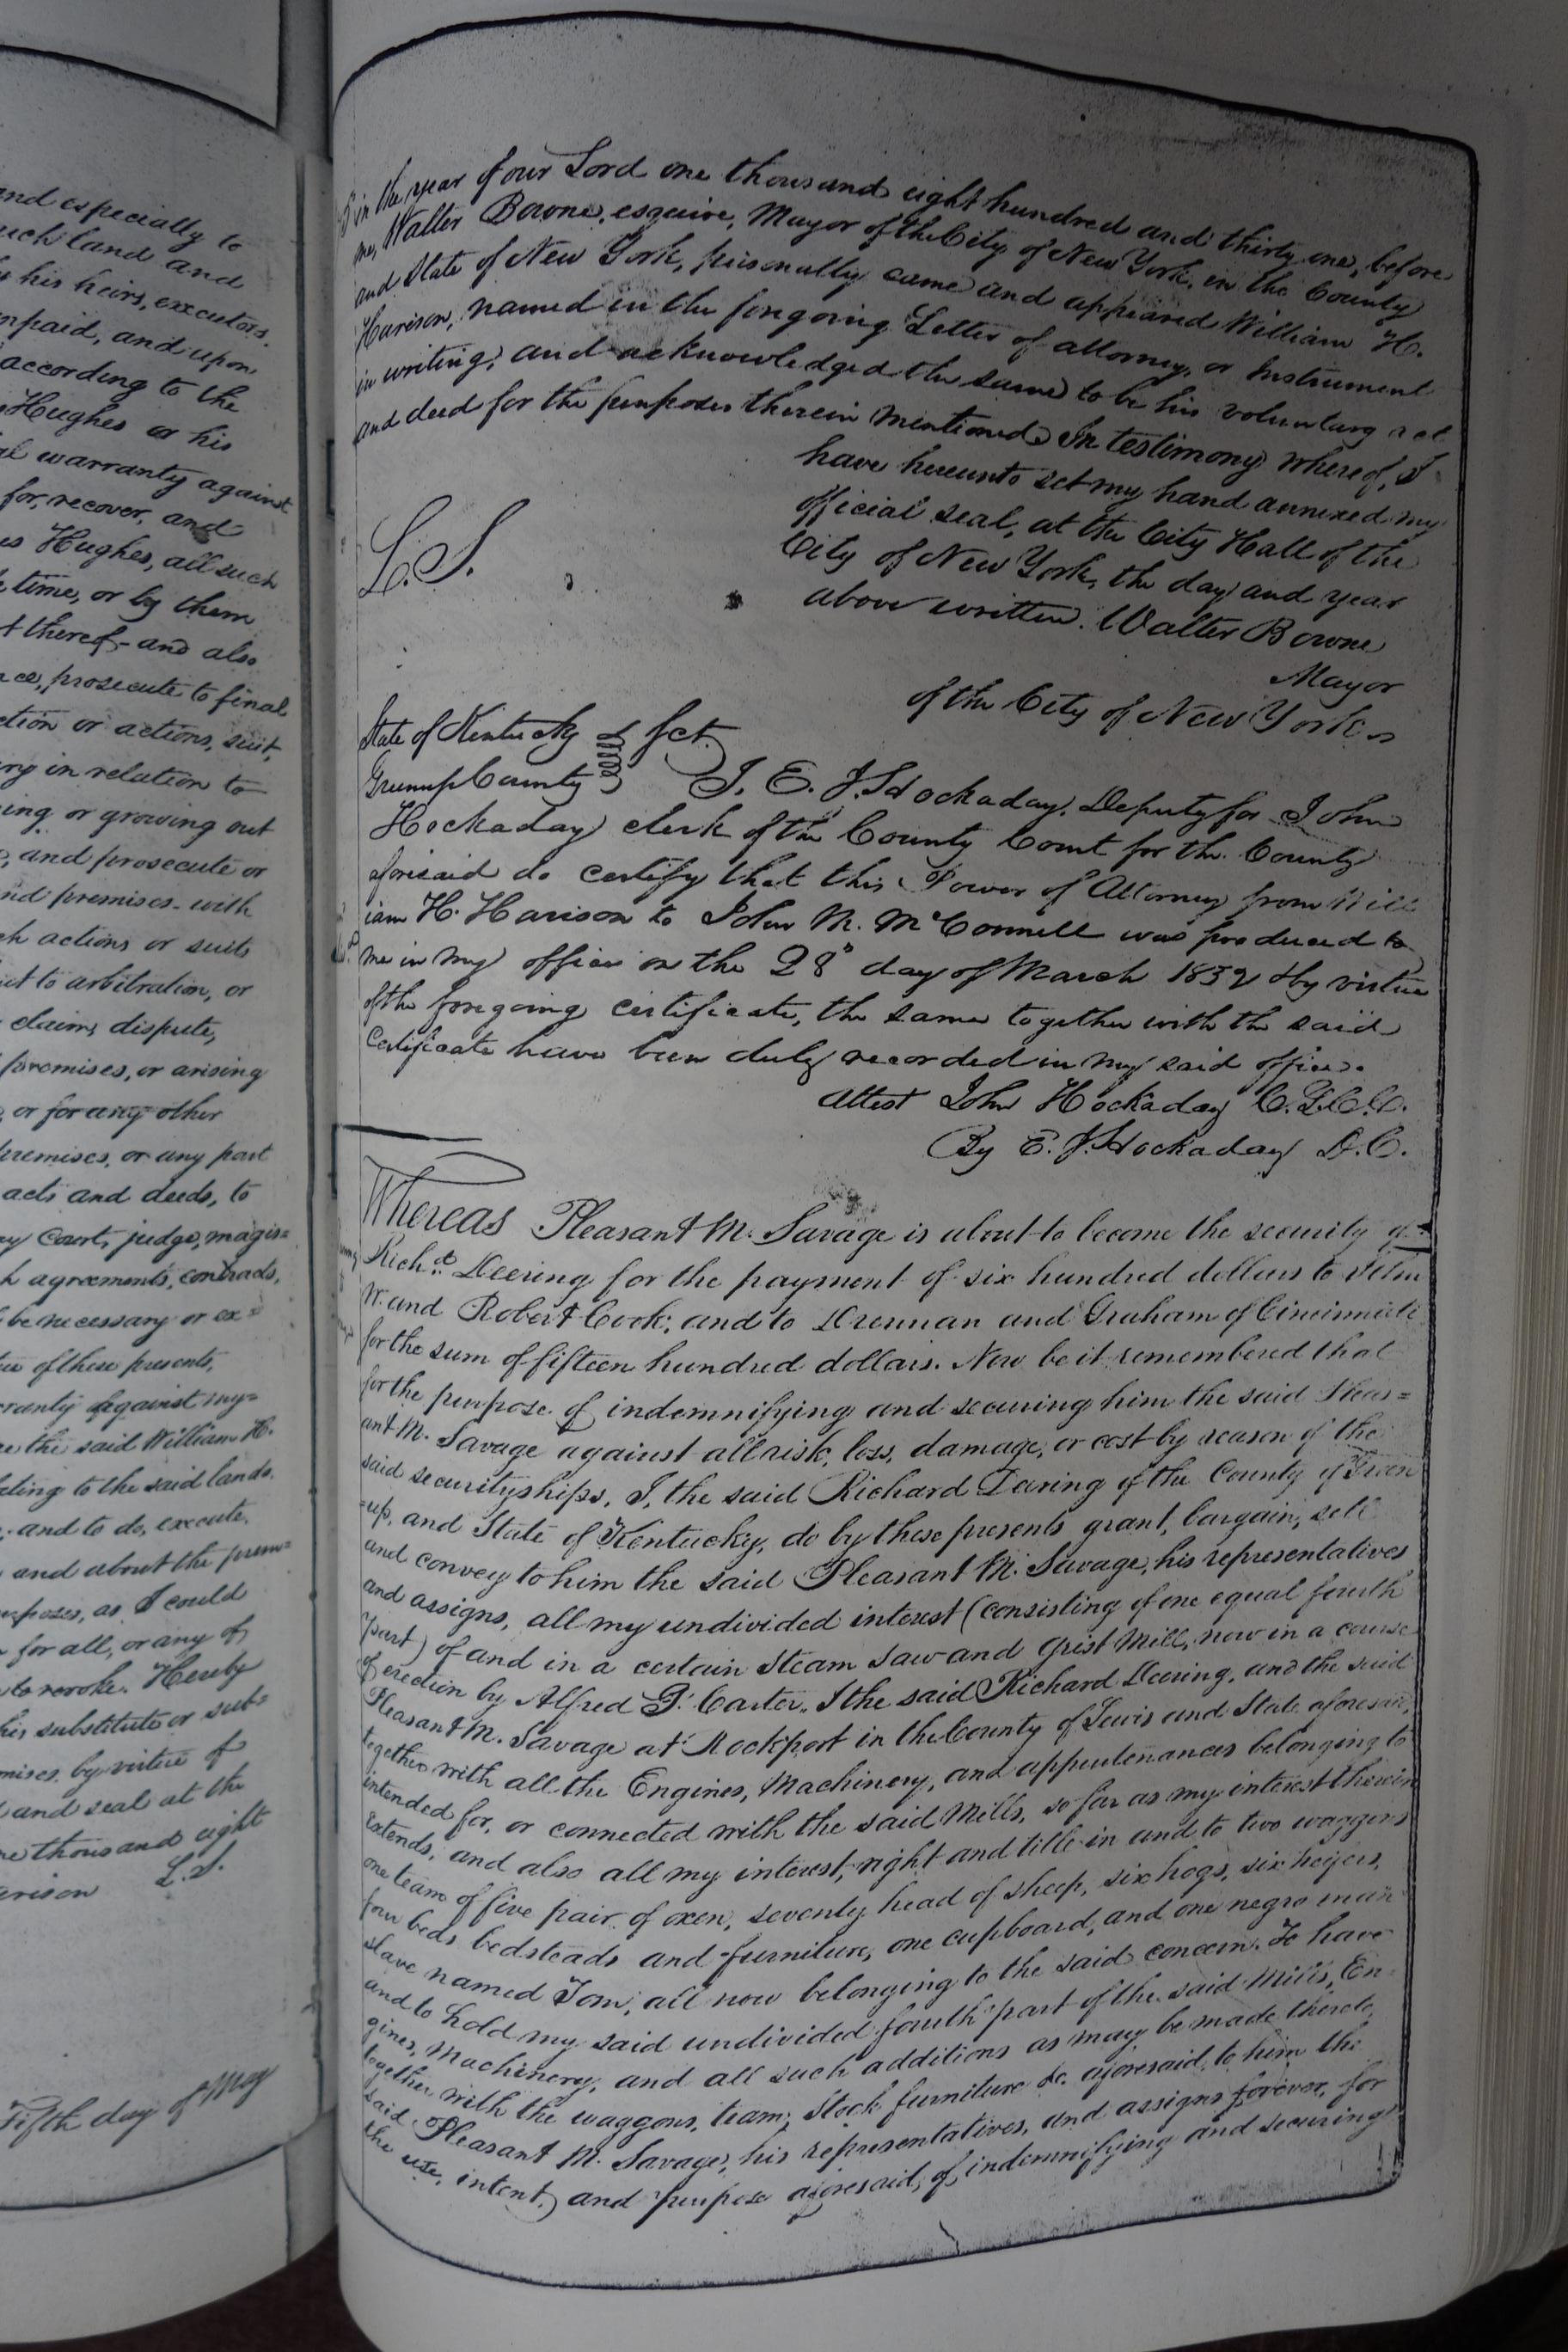 and especially to
such land and
his heirs, executors,
unpaid, and upon
according to the
Hughes or his
warranty against
for, recover, and
Hughes, all such
time, or by them
thereof - and also
prosecute to final
action or actions, suit,
in relation to
or growing out
and prosecute or
and premises - with
actions or suits
to arbitration, or
claim, dispute,
premises, or arising
or for any other
premises, or any part
acts and deeds, to
Court, judge, magis=
agreements, contracts,
be necessary or ex=
of these presents,
against my=
the said William H.
to the said lands.
and to do, execute.
and about the prem=
as I could
for all, or any of
to revoke. Hereby
his substitute or sub=
by virtue of
and seal at the
thousand and eight
L.S.
Fifth day of May
in the year of our Lord one thousand eight hundred and thirty one, before
me, Walter Bowne, esquire, Mayor of the City of New York, in the County
and State of New York, personally came and appeared William H.
Harison, named in the foregoing Letter of attorney, or Instrument
in writing, and acknowledged the same to be his voluntary act
and deed for the purposes therein mentioned In testimony whereof, I
have hereunto set my hand annexed my
official seal, at the City Hall of the
City of New York, the day and year
above written. Walter Bowne
L.S.
Mayor
of the City of New York
State of Kentucky } Sct.
Greenup County } I, E. J. Hockaday, Deputy for John
Hockaday clerk of the County Court for the County
aforesaid do certify that this Power of Attorney from Will
iam H. Harison to John M. McConnell was produced to
me in my office on the 28" day of March 1832 & by virtue
of the foregoing certificate, the same together with the said
Certificate have been duly recorded in my said office.
Attest John Hockaday C.G.C.C.
By E. J. Hockaday D.C.
Whereas Pleasant M. Savage is about to become the security of
Richd. Deering for the payment of six hundred dollars to John
W. and Robert Cook; and to Drennan and Graham of Cincinnati
for the sum of fifteen hundred dollars. Now be it remembered that
for the purpose of indemnifying and securing him the said Pleas=
ant M. Savage against all risk, loss, damage, or cost by reason of the
said securityships, I, the said Richard Deering of the County of Green
=up, and State of Kentucky, do by these presents grant, bargain, sell
and convey to him the said Pleasant M. Savage, his representatives
and assigns, all my undivided interest (consisting of one equal fourth
part) of and in a certain Steam Saw and Grist Mill, now in a course
of erection by Alfred P. Carter, I the said Richard Deering, and the said
Pleasant M. Savage at Rockport in the County of Lewis and State aforesaid,
together with all the Engines, Machinery, and appurtenances belonging to
intended for, or connected with the said Mills, so far as my interest therein
extends, and also all my interest, right and title in and to two waggons
one team of five pair of oxen, seventy head of sheep, six hogs, six heifers,
four beds bedsteads and furniture, one cupboard, and one negro man
slave named Tom, all now belonging to the said concern. To have
and to hold my said undivided fourth part of the said Mills, En-
gines, Machinery, and all such additions as may be made thereto,
together with the waggons, team, Stock furniture &c aforesaid, to him the
said Pleasant M. Savage, his representatives, and assigns forever, for
the use, intent, and purpose aforesaid, of indemnifying and securing